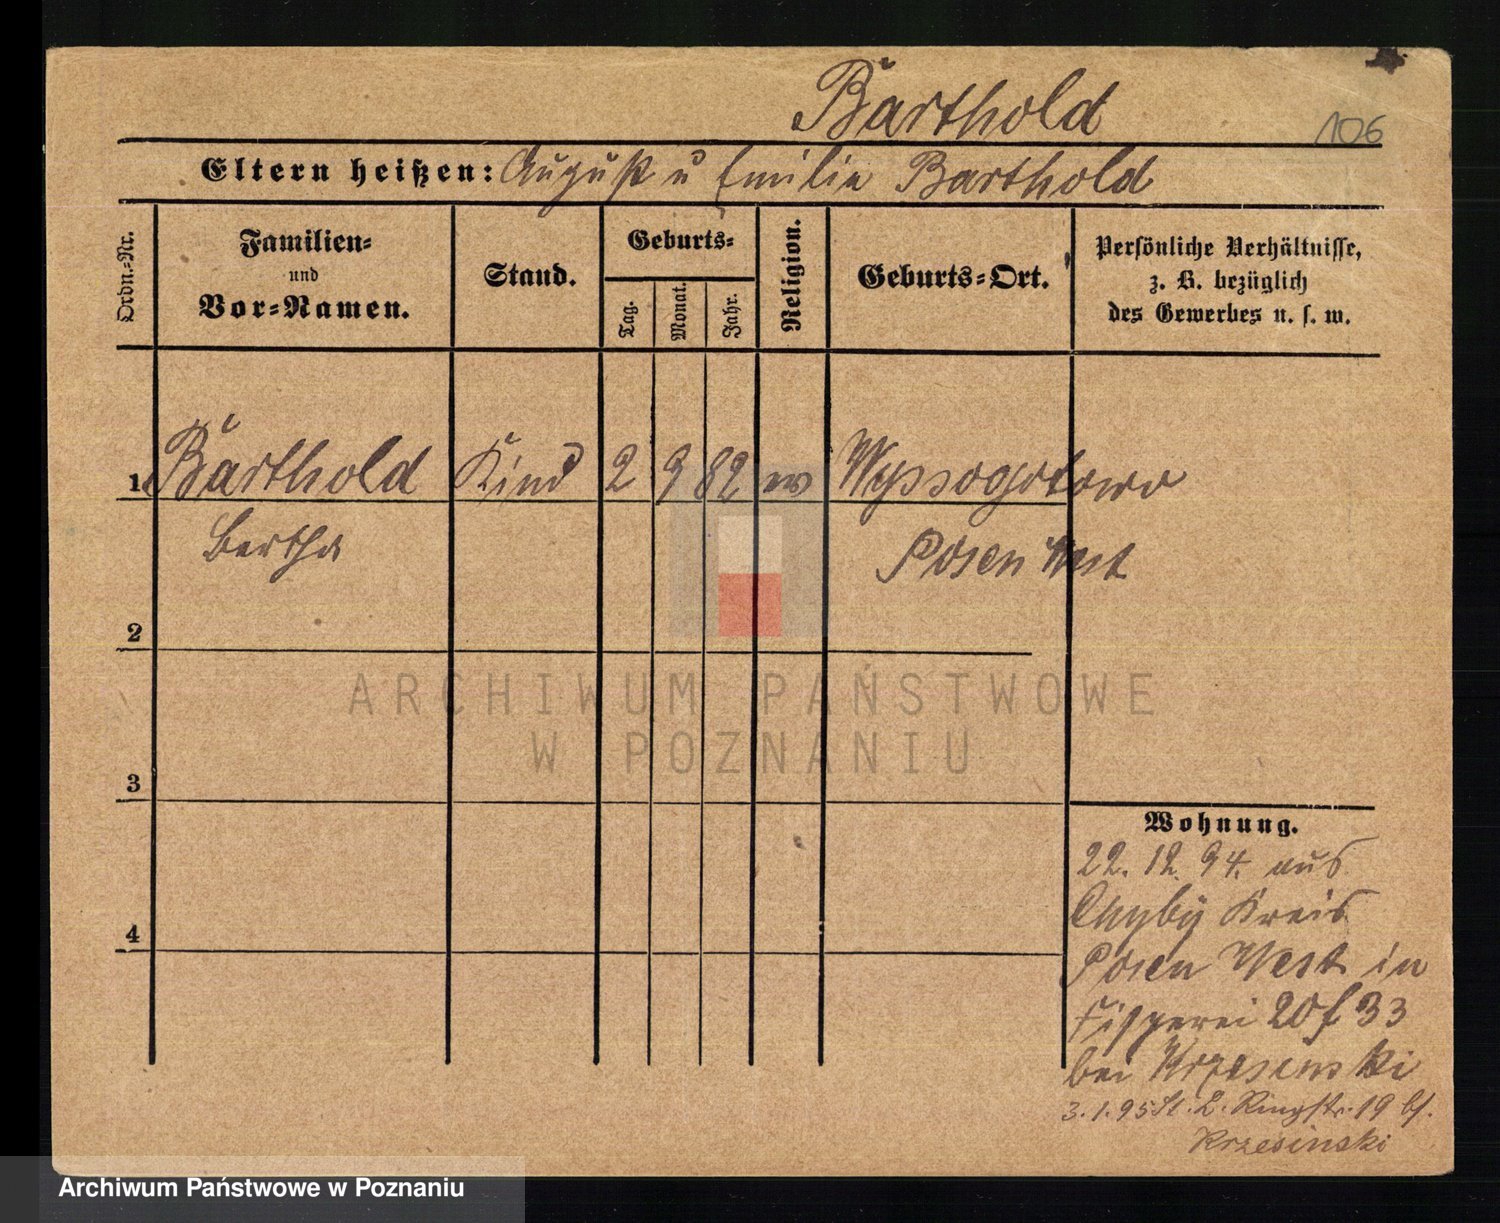 Barthold
106
Eltern heißen: August u Emilie Barthold
Ordn.-Nr.
Familien-
und
Vor-Namen.
Stand.
Geburts-
Tag.
Monat.
Jahr.
Religion.
Geburts-Ort.
Persönliche Verhältnisse,
z. B. bezüglich
des Gewerbes u. s. w.
1 Barthold Kind 2 9 82 ev Wyssogotowo
Bertha Posen West
2
ARCHIWUM PAŃSTWOWE
W POZNANIU
3
Wohnung.
22. 12. 94. aus
Chyby Kreis
4
Posen West in
Fischerei 20 f 33
bei Krzesinski
3.1.95 Ringstr. 19 bf.
Krzesinski
Archiwum Państwowe w Poznaniu